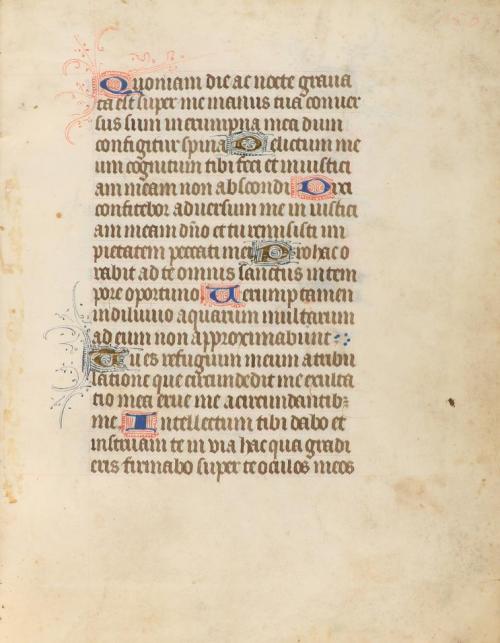 Quoniam die ac nocte graua
ta est super me manus tua conuer
sus sum in erumpna mea dum
configitur spina Delictum me
um cognitum tibi feci et iniustici
am meam non abscondi Dixi
confitebor aduersum me iniustici
am meam dño et tu remisisti im
pietatem peccati mei Pro hac o
rabit ad te omnis sanctus in tem
pore oportuno Uerumptamen
in diluuio aquarum multarum
ad eum non approximabunt
Tu es refugium meum a tribu
latione que circundedit me exulta
tio mea erue me a circundantib;
me. Intellectum tibi dabo et
instruam te in via hac qua gradi
eris firmabo super te oculos meos